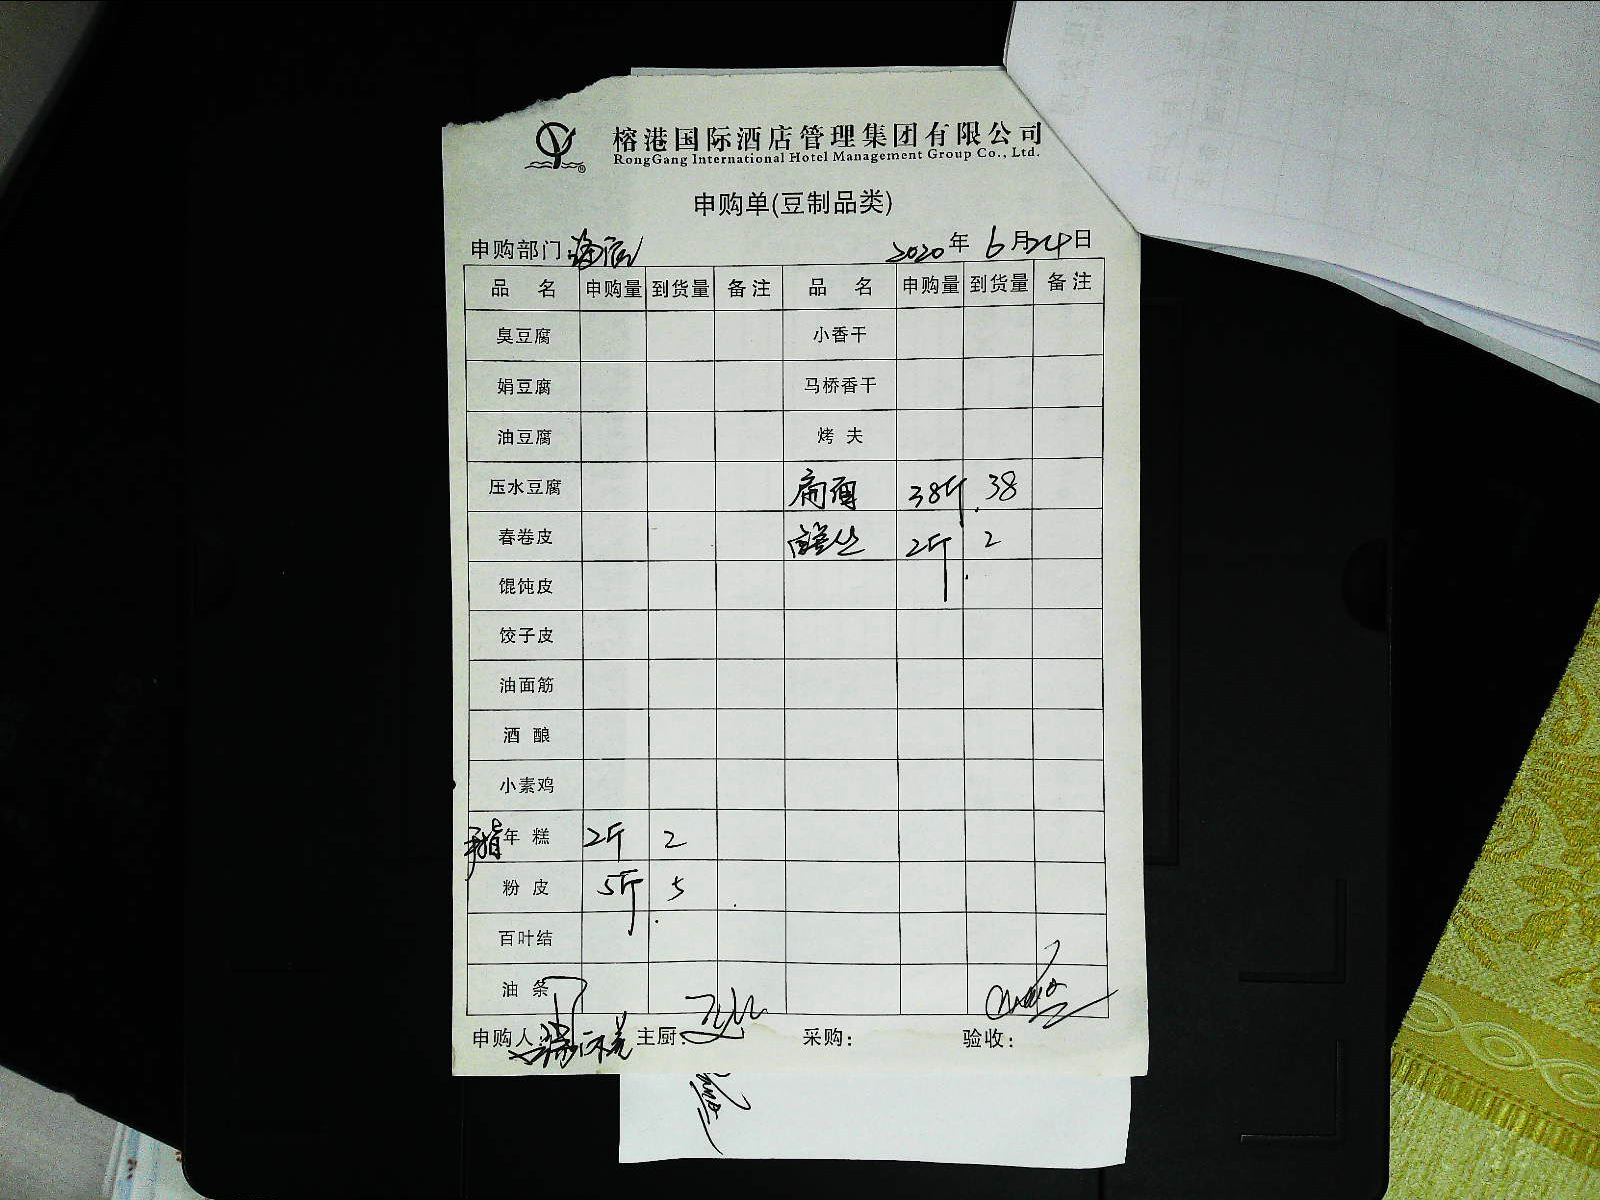 榕港国际酒店管理集团有限公司
RongGang International Hotel Management Group Co., Ltd.
申购单(豆制品类)
申购部门: 2020年6月24日
品 名 申购量 到货量 备注 品 名 申购量 到货量 备注
臭豆腐 小香干
娟豆腐 马桥香干
油豆腐 烤夫
压水豆腐 38斤 38
春卷皮 2斤 2
馄饨皮
饺子皮
油面筋
酒酿
小素鸡
手指年糕 2斤 2
粉皮 5斤 5
百叶结
油条
申购人: 主厨: 采购: 验收: